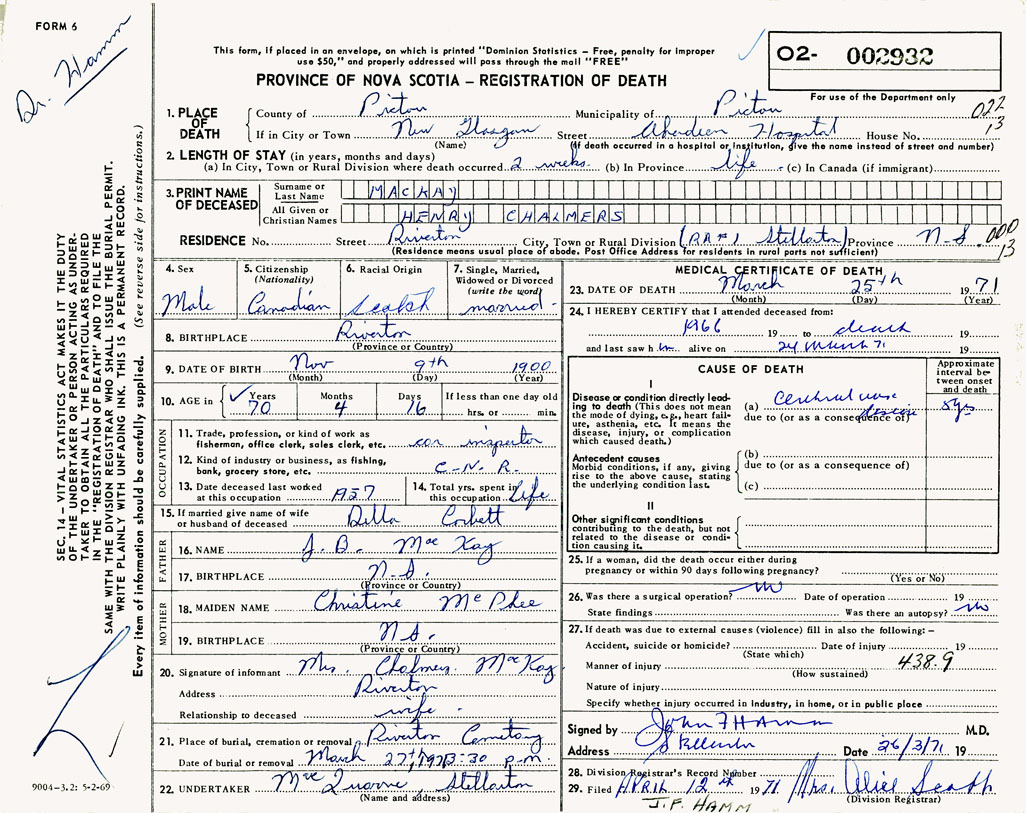 FORM 6
Dr. Hamm
This form, if placed in an envelope, on which is printed "Dominion Statistics – Free, penalty for improper
use $50," and properly addressed will pass through the mail "FREE"
PROVINCE OF NOVA SCOTIA – REGISTRATION OF DEATH
O2- 002932
For use of the Department only
022
13
1. PLACE OF DEATH
County of Pictou Municipality of Pictou
If in City or Town New Glasgow Street Aberdeen Hospital House No.
(Name) (If death occurred in a hospital or institution, give the name instead of street and number)
2. LENGTH OF STAY (in years, months and days)
(a) In City, Town or Rural Division where death occurred 2 weeks (b) In Province life (c) In Canada (if immigrant)
3. PRINT NAME OF DECEASED
Surname or Last Name MACKAY
All Given or Christian Names HENRY CHALMERS
RESIDENCE No. Street Riverton City, Town or Rural Division Stellarton Province N-S. 000
13
(Residence means usual place of abode. Post Office Address for residents in rural parts not sufficient)
4. Sex
Male
5. Citizenship
(Nationality)
Canadian
6. Racial Origin
Scotch
7. Single, Married,
Widowed or Divorced
(write the word)
married
8. BIRTHPLACE Riverton
(Province or Country)
9. DATE OF BIRTH Nov 9th 1900
(Month) (Day) (Year)
10. AGE in Years Months Days If less than one day old
70 4 16 hrs. or min.
OCCUPATION
11. Trade, profession, or kind of work as
fisherman, office clerk, sales clerk, etc. car inspector
12. Kind of industry or business, as fishing,
bank, grocery store, etc. C.N.R.
13. Date deceased last worked
at this occupation 1957
14. Total yrs. spent in
this occupation Life
15. If married give name of wife
or husband of deceased Della Corbett
FATHER
16. NAME J. B. MacKay
17. BIRTHPLACE N.S.
(Province or Country)
MOTHER
18. MAIDEN NAME Christine McPhee
19. BIRTHPLACE N.S.
(Province or Country)
20. Signature of informant Mrs. Chalmers MacKay
Address Riverton
Relationship to deceased wife
21. Place of burial, cremation or removal Riverton Cemetary
Date of burial or removal March 27th 3:30 p.m.
22. UNDERTAKER Stellarton
(Name and address)
MEDICAL CERTIFICATE OF DEATH
23. DATE OF DEATH March 25th 1971
(Month) (Day) (Year)
24. I HEREBY CERTIFY that I attended deceased from:
1966 19 to death 19
and last saw him alive on 24 March 71 19
CAUSE OF DEATH
Approximate
interval be-
tween onset
and death
I
Disease or condition directly lead-
ing to death (This does not mean
the mode of dying, e.g., heart fail-
ure, asthenia, etc. It means the
disease, injury, or complication
which caused death.)
(a) Cerebral vasc disease
due to (or as a consequence of)
5 yrs
Antecedent causes
Morbid conditions, if any, giving
rise to the above cause, stating
the underlying condition last.
(b)
due to (or as a consequence of)
(c)
II
Other significant conditions
contributing to the death, but not
related to the disease or condi-
tion causing it.
25. If a woman, did the death occur either during
pregnancy or within 90 days following pregnancy?
(Yes or No)
26. Was there a surgical operation? no Date of operation 19
State findings Was there an autopsy? no
27. If death was due to external causes (violence) fill in also the following: –
Accident, suicide or homicide? Date of injury 19
(State which)
Manner of injury 438.9
(How sustained)
Nature of injury
Specify whether injury occurred in Industry, in home, or in public place
Signed by John F Hamm M.D.
Address Stellarton Date 26/3/71 19
28. Division Registrar's Record Number
29. Filed APRIL 12th 1971 Mrs. Alice
(Division Registrar)
J.F. HAMM
SEC. 14 – VITAL STATISTICS ACT MAKES IT THE DUTY
OF THE UNDERTAKER OR PERSON ACTING AS UNDER-
TAKER TO OBTAIN ALL THE PARTICULARS REQUIRED
IN THE "REGISTRATION OF DEATH" AND TO FILE THE
SAME WITH THE DIVISION REGISTRAR WHO SHALL ISSUE THE BURIAL PERMIT.
WRITE PLAINLY WITH UNFADING INK. THIS IS A PERMANENT RECORD.
Every item of information should be carefully supplied. (See reverse side for instructions.)
9004-3.2: 5-2-69